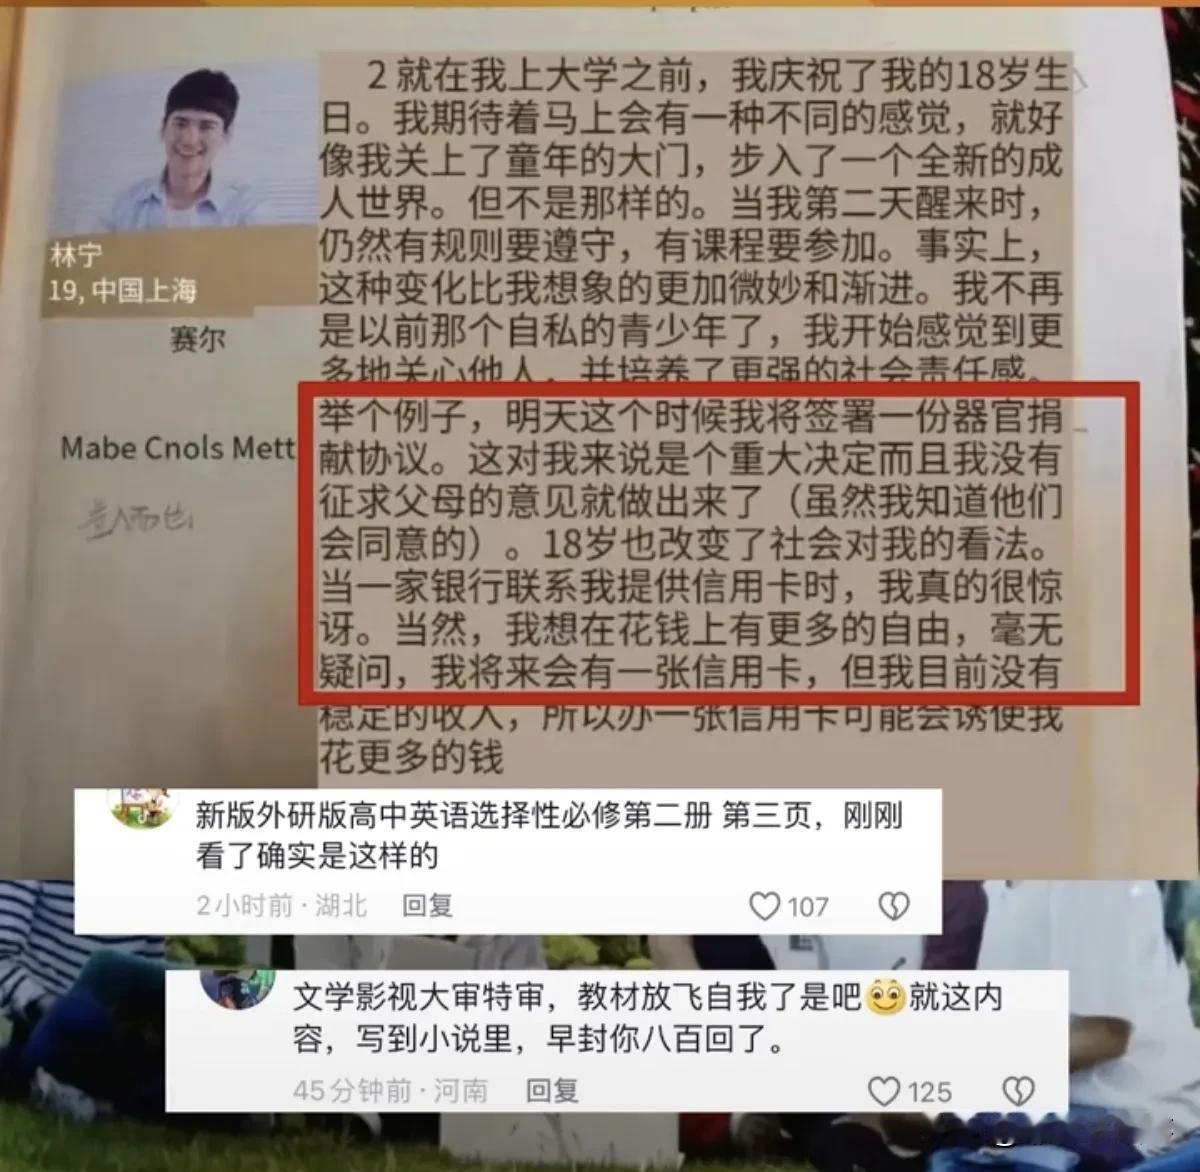 2 就在我上大学之前，我庆祝了我的18岁生
日。我期待着马上会有一种不同的感觉，就好
像我关上了童年的大门，步入了一个全新的成
人世界。但不是那样的。当我第二天醒来时，
仍然有规则要遵守，有课程要参加。事实上，
这种变化比我想象的更加微妙和渐进。我不再
是以前那个自私的青少年了，我开始感觉到更
多地关心他人，并培养了更强的社会责任感。
举个例子，明天这个时候我将签署一份器官捐
献协议。这对我来说是个重大决定而且我没有
征求父母的意见就做出来了（虽然我知道他们
会同意的）。18岁也改变了社会对我的看法。
当一家银行联系我提供信用卡时，我真的很惊
讶。当然，我想在花钱上有更多的自由，毫无
疑问，我将来会有一张信用卡，但我目前没有
稳定的收入，所以办一张信用卡可能会诱使我
花更多的钱
林宁
19, 中国上海
赛尔
Mabe Cnols Mett
量入而出
新版外研版高中英语选择性必修第二册 第三页，刚刚
看了确实是这样的
2小时前·湖北 回复 107
文学影视大审特审，教材放飞自我了是吧就这内
容，写到小说里，早封你八百回了。
45分钟前·河南 回复 125